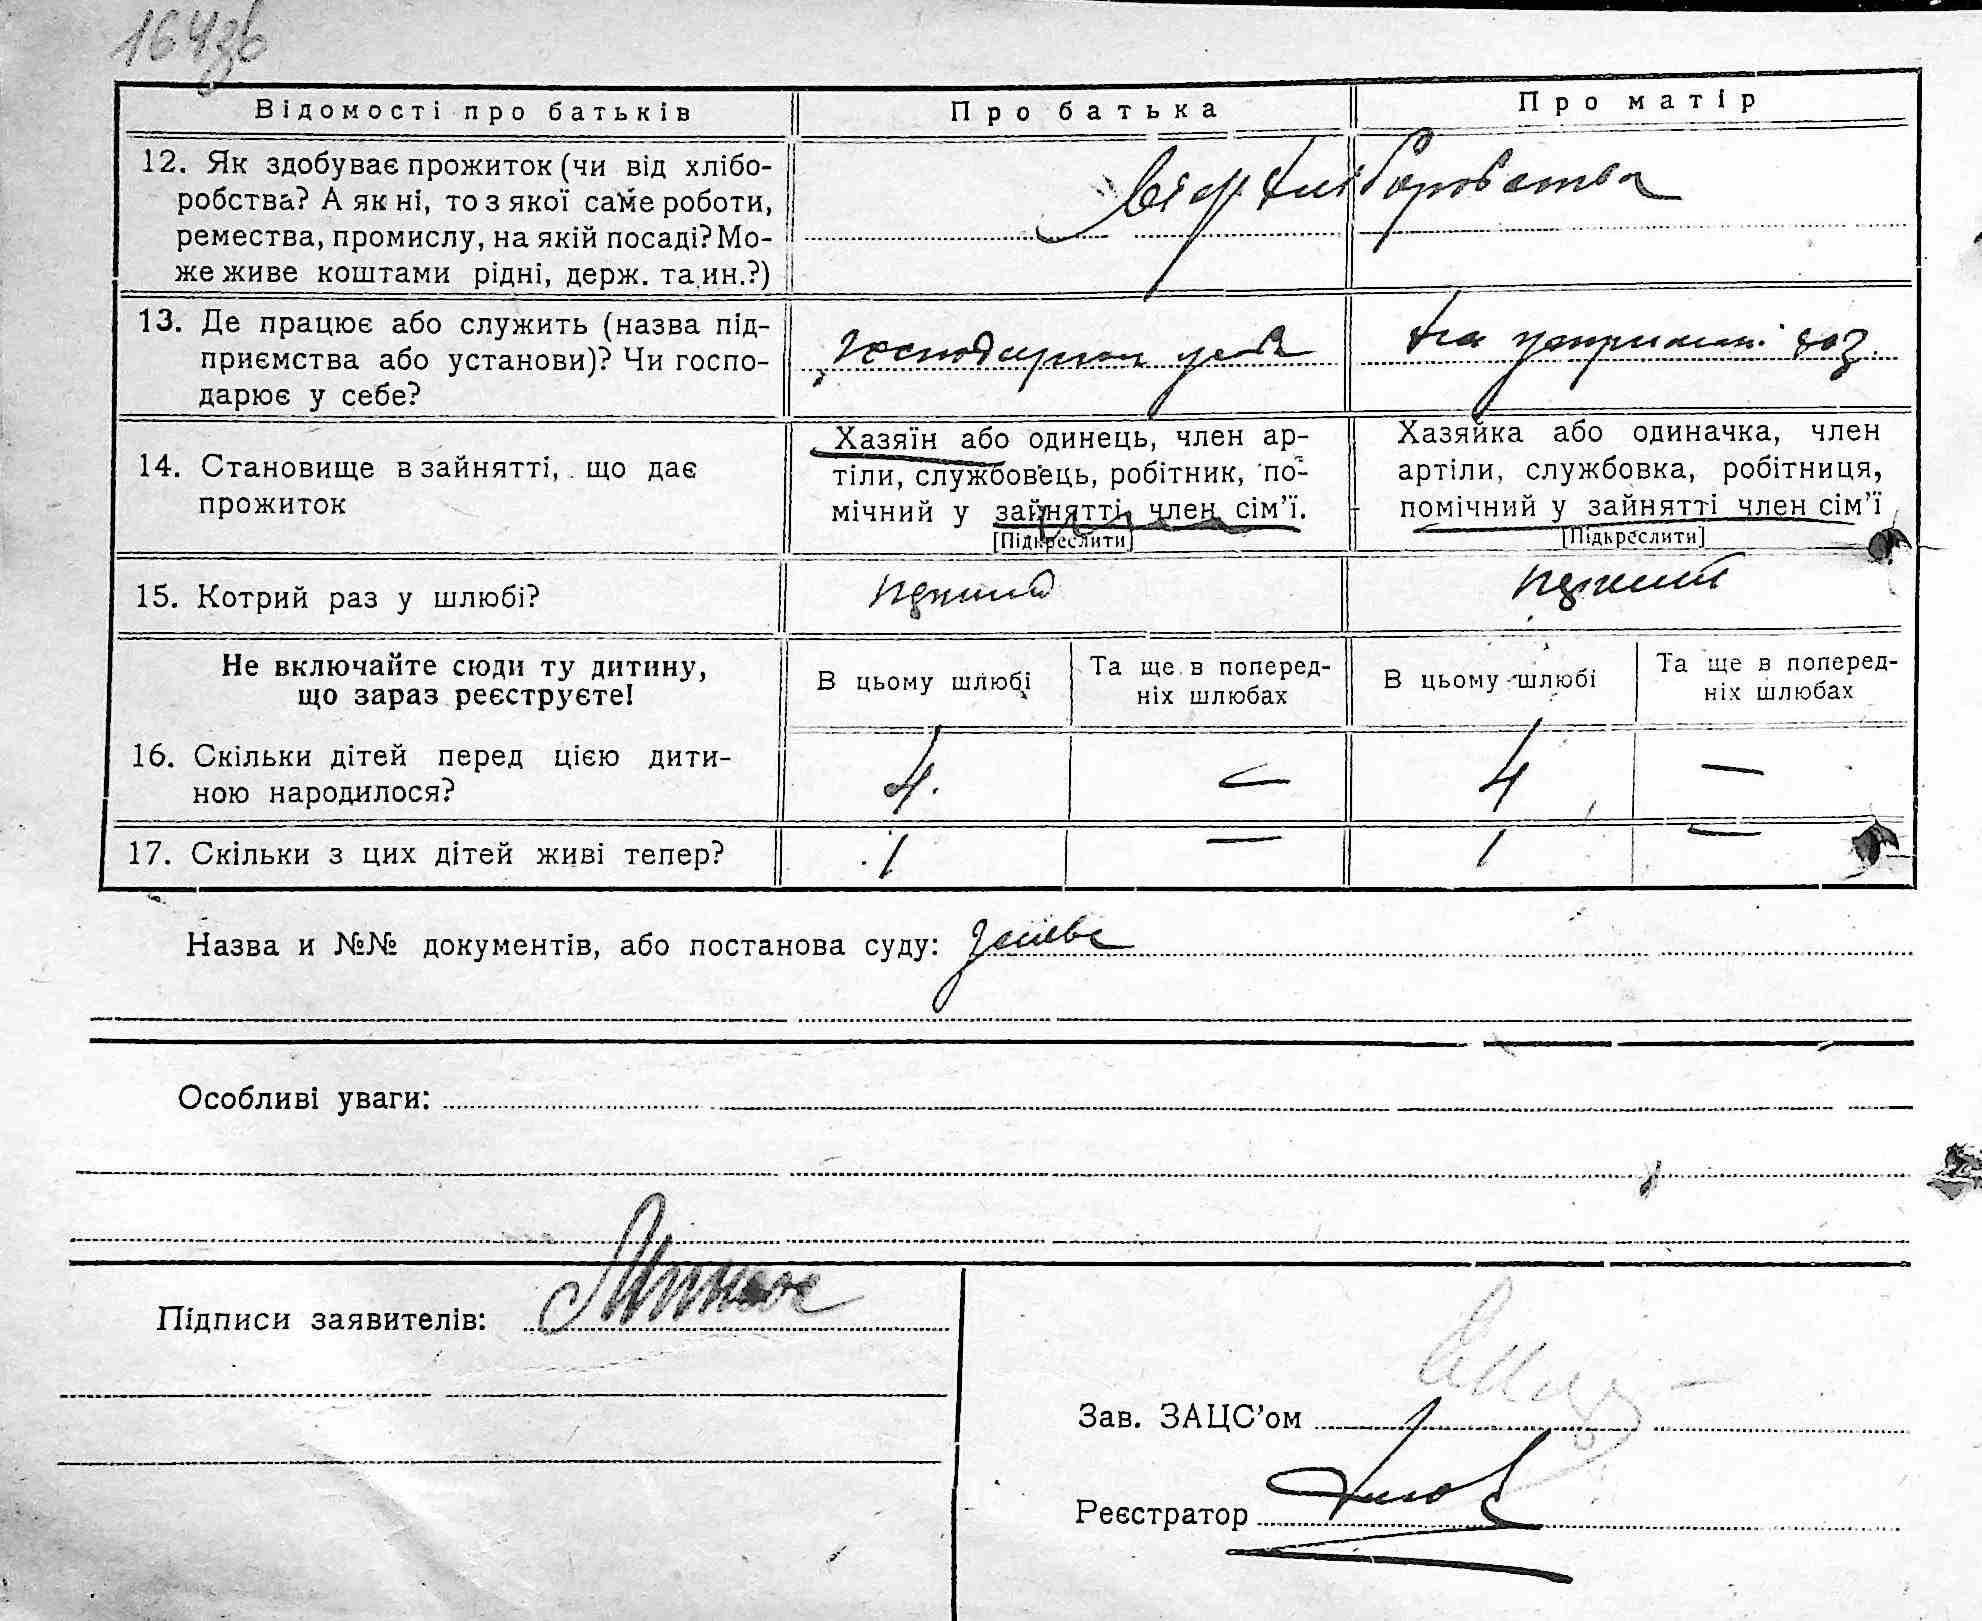 164зв
Відомості про батьків
Про батька
Про матір
12. Як здобуває прожиток (чи від хлібо-
робства? А як ні, то з якої саме роботи,
ремества, промислу, на якій посаді? Мо-
же живе коштами рідні, держ. та ин.?)
від хліборобства
13. Де працює або служить (назва під-
приємства або установи)? Чи госпо-
дарює у себе?
господарює у себе
на утриманні
14. Становище в зайнятті, що дає
прожиток
Хазяїн або одинець, член ар-
тіли, службовець, робітник, по-
мічний у зайнятті член сім'ї.
[Підкреслити]
Хазяйка або одиначка, член
артіли, службовка, робітниця,
помічний у зайнятті член сім'ї
[Підкреслити]
15. Котрий раз у шлюбі?
перший
перший
Не включайте сюди ту дитину,
що зараз реєструєте!
В цьому шлюбі
Та ще в поперед-
ніх шлюбах
В цьому шлюбі
Та ще в поперед-
ніх шлюбах
16. Скільки дітей перед цією дити-
ною народилося?
4. — 4 —
17. Скільки з цих дітей живі тепер?
1 — 1 —
Назва и №№ документів, або постанова суду:
Особливі уваги:
Підписи заявителів:
Зав. ЗАЦС'ом
Реєстратор